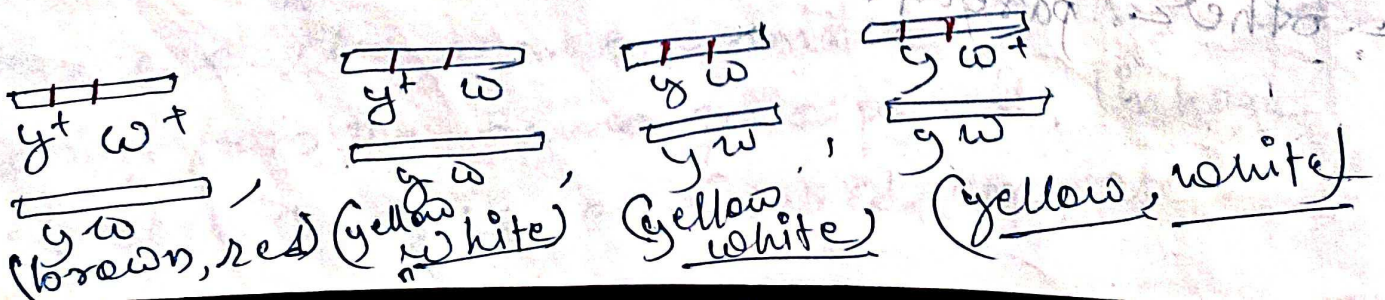 y+ w+
y w
(brown, red)
y+ w
y w
(yellow, white)
y w
y w
(yellow, white)
y w+
y w
(yellow, white)